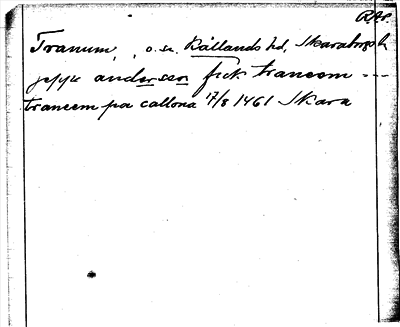 RAp.
Tranum, o. sn. Kållands hd, Skaraborgs l.
jeppe anderson fick traneem ---
traneem pa callona 17/8 1461 Skara